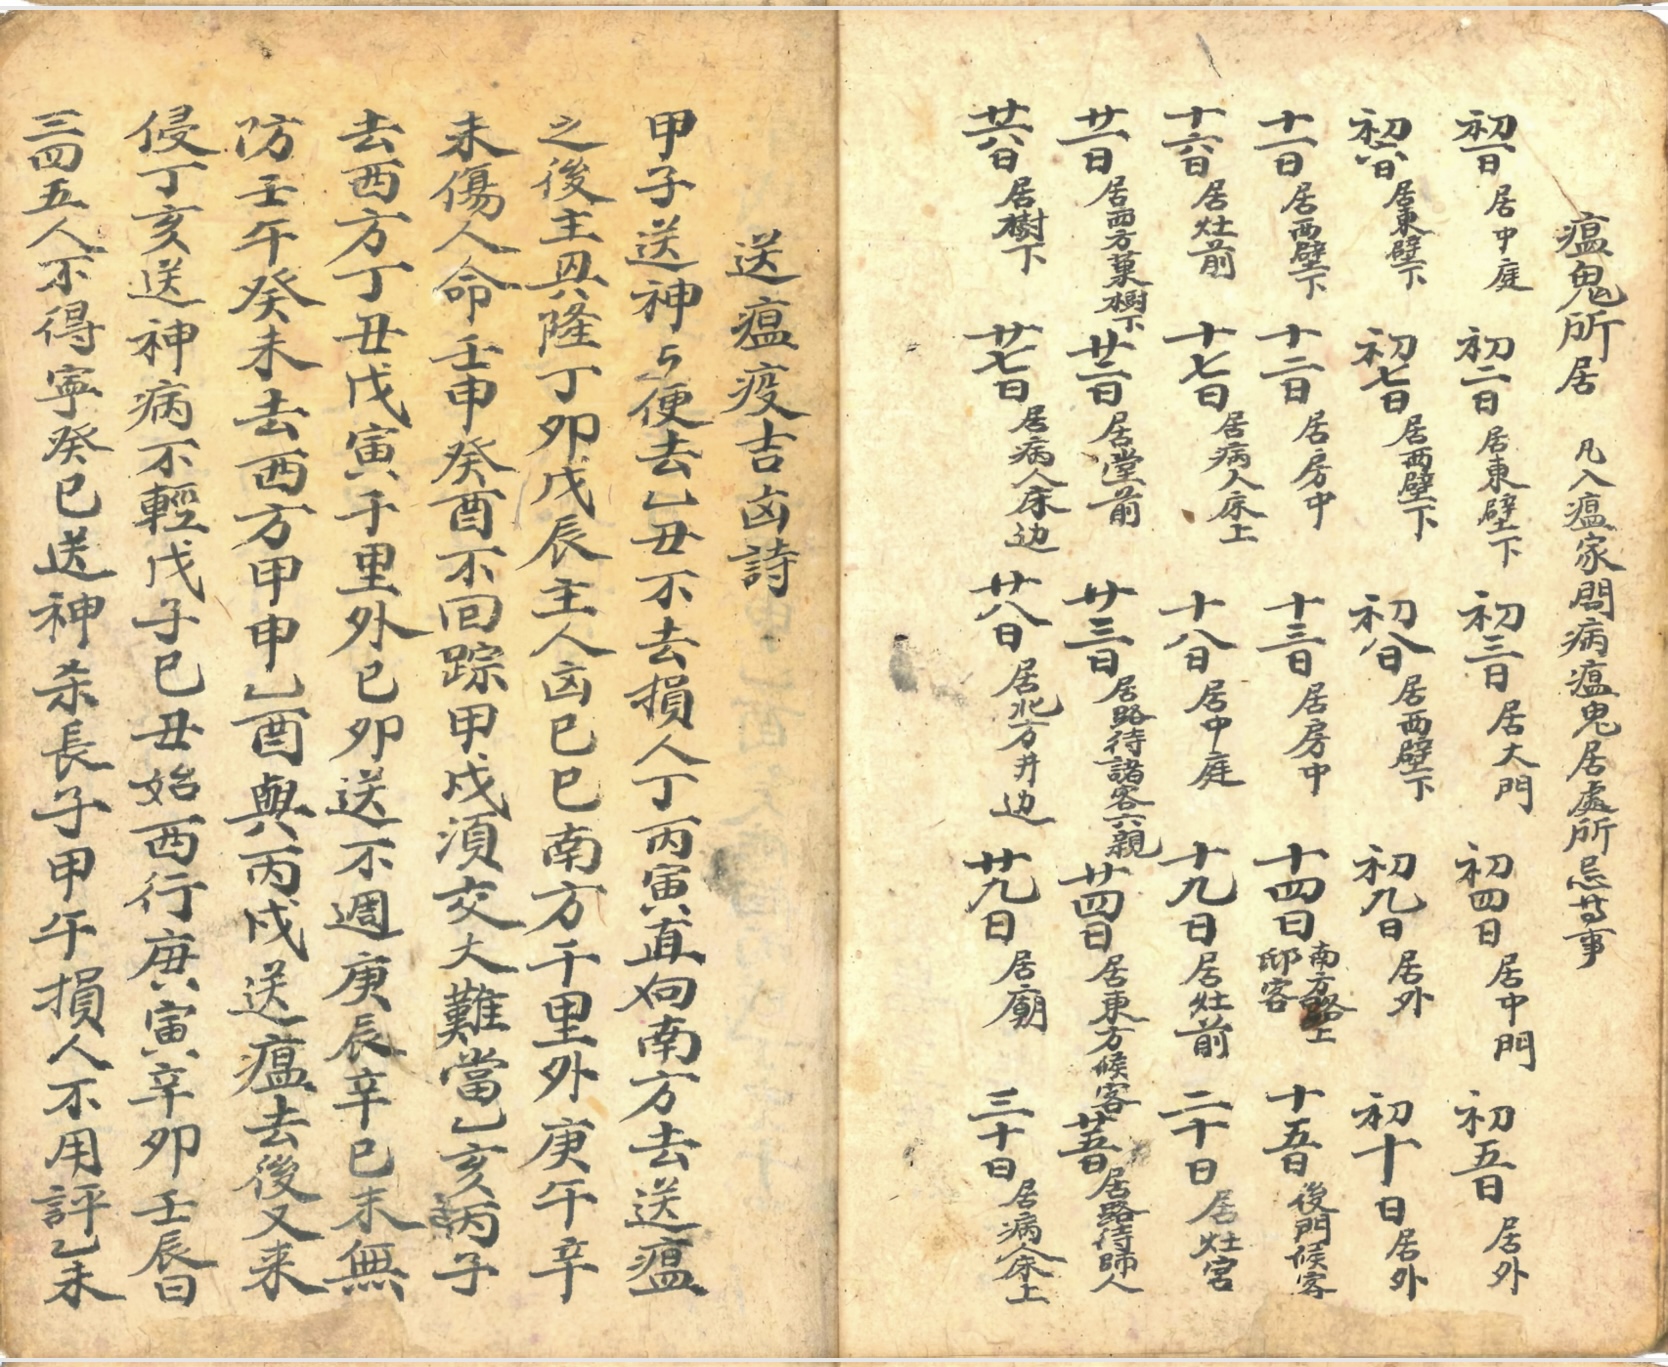 瘟鬼所居 凡入瘟家問病瘟鬼居處所忌䓁事
初一日居中庭 初二日居東壁下 初三日居大門 初四日居中門 初五日居外
初六日居東壁下 初七日居西壁下 初八日居西壁下 初九日居外 初十日居外
十一日居西壁下 十二日居房中 十三日居房中 十四日南方路上邸客 十五日後門候客
十六日居灶前 十七日居病人床上 十八日居中庭 十九日居灶前 二十日居灶宮
廿一日居西方菓樹下 廿二日居堂前 廿三日居路待諸客六親 廿四日居東方候客 廿五日居路待師人
廿六日居樹下 廿七日居病人床边 廿八日居北方井边 廿九日居廟 三十日居病人床上
送瘟疫吉凶詩
甲子送神与便去乙丑不去損人丁丙寅直向南方去送瘟
之後主興隆丁卯戊辰主人凶巳巳南方千里外庚午辛
未傷人命壬申癸酉不回踪甲戌須交大難當乙亥丙子
去西方丁丑戊寅千里外巳卯送不週庚辰辛巳未無
防壬午癸未去西方甲申乙酉與丙戌送瘟去後又来
侵丁亥送神病不輕戊子巳丑始西行庚寅辛卯壬辰日
三四五人不得寧癸巳送神杀長子甲午損人不用評乙未